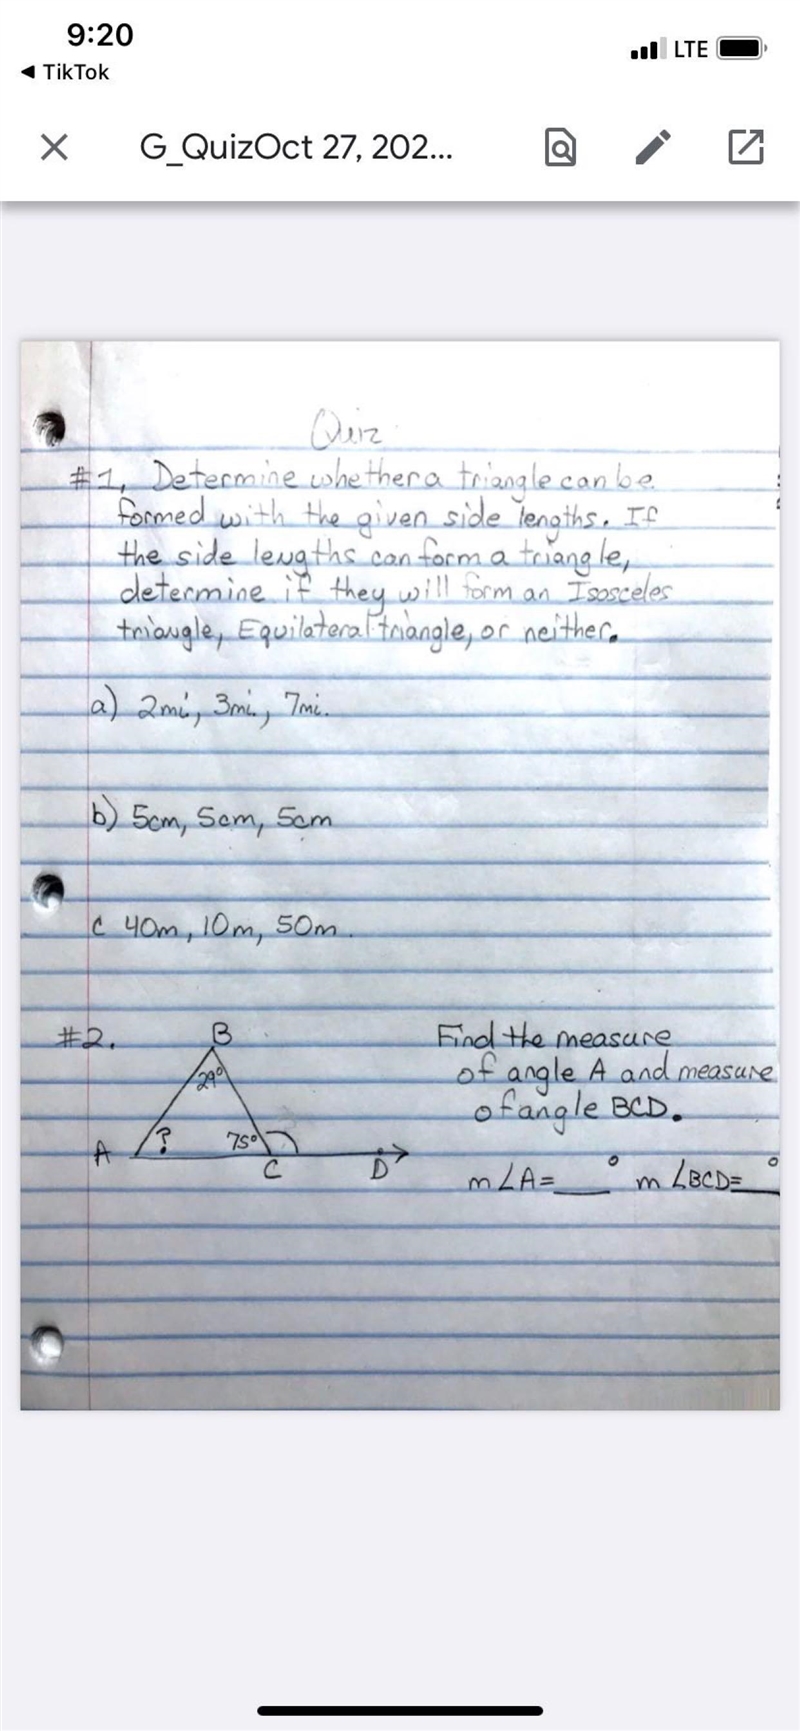 9:20
LTE
◀ TikTok
G_QuizOct 27, 202...
Quiz
#1, Determine whether a triangle can be
formed with the given side lengths. If
the side lengths can form a triangle,
determine if they will form an Isosceles
triangle, Equilateral triangle, or neither.
a) 2mi, 3mi., 7mi.
b) 5cm, 5cm, 5cm
c 40m, 10m, 50m.
#2.
B
29°
A
?
75°
C
D
Find the measure
of angle A and measure
of angle BCD.
m∠A=___° m∠BCD=__°